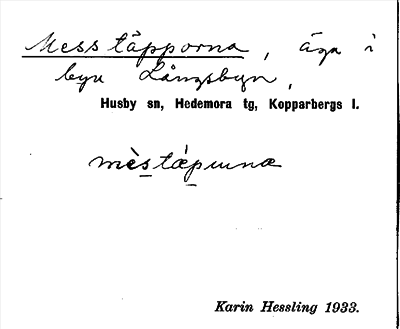 Messtäpporna, äga i
byn Långsbyn,
Husby sn, Hedemora tg, Kopparbergs l.
mèstápuna
Karin Hessling 1933.